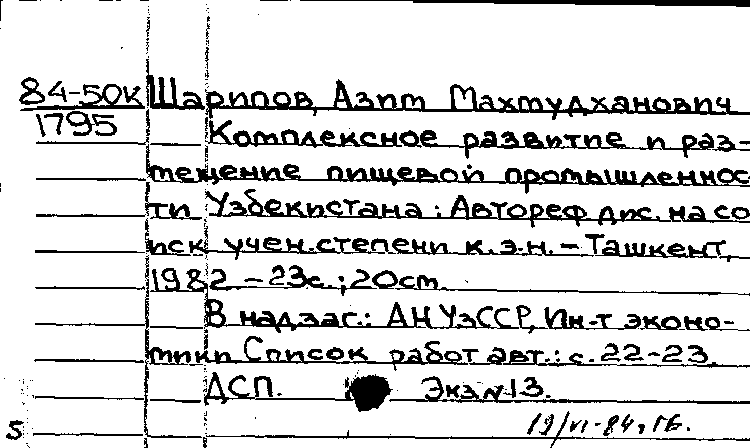 84-50К Шарипов, Азим Махмудханович
1795 Комплексное развитие и раз-
мещение пищевой промышленнос
ти Узбекистана : Автореф дис. на со
иск учен. степени к. э. н. – Ташкент,
1982 – 23с. ; 20 см.
В надзаг.: АН УзССР, Ин-т эконо-
мики Список работ авт.: с. 22-23.
ДСП. Экз № 13.
5 19/VI-84,